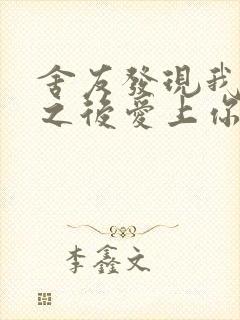 舍友發現我
之後愛上你
李鑫文